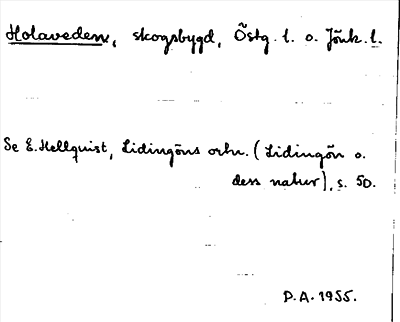 Holaveden, skogsbygd, Östg. l. o. Jönk. l.
Se E. Hellquist, Lidingöns ortn. (Lidingön o.
dess natur), s. 50.
D.A. 1955.